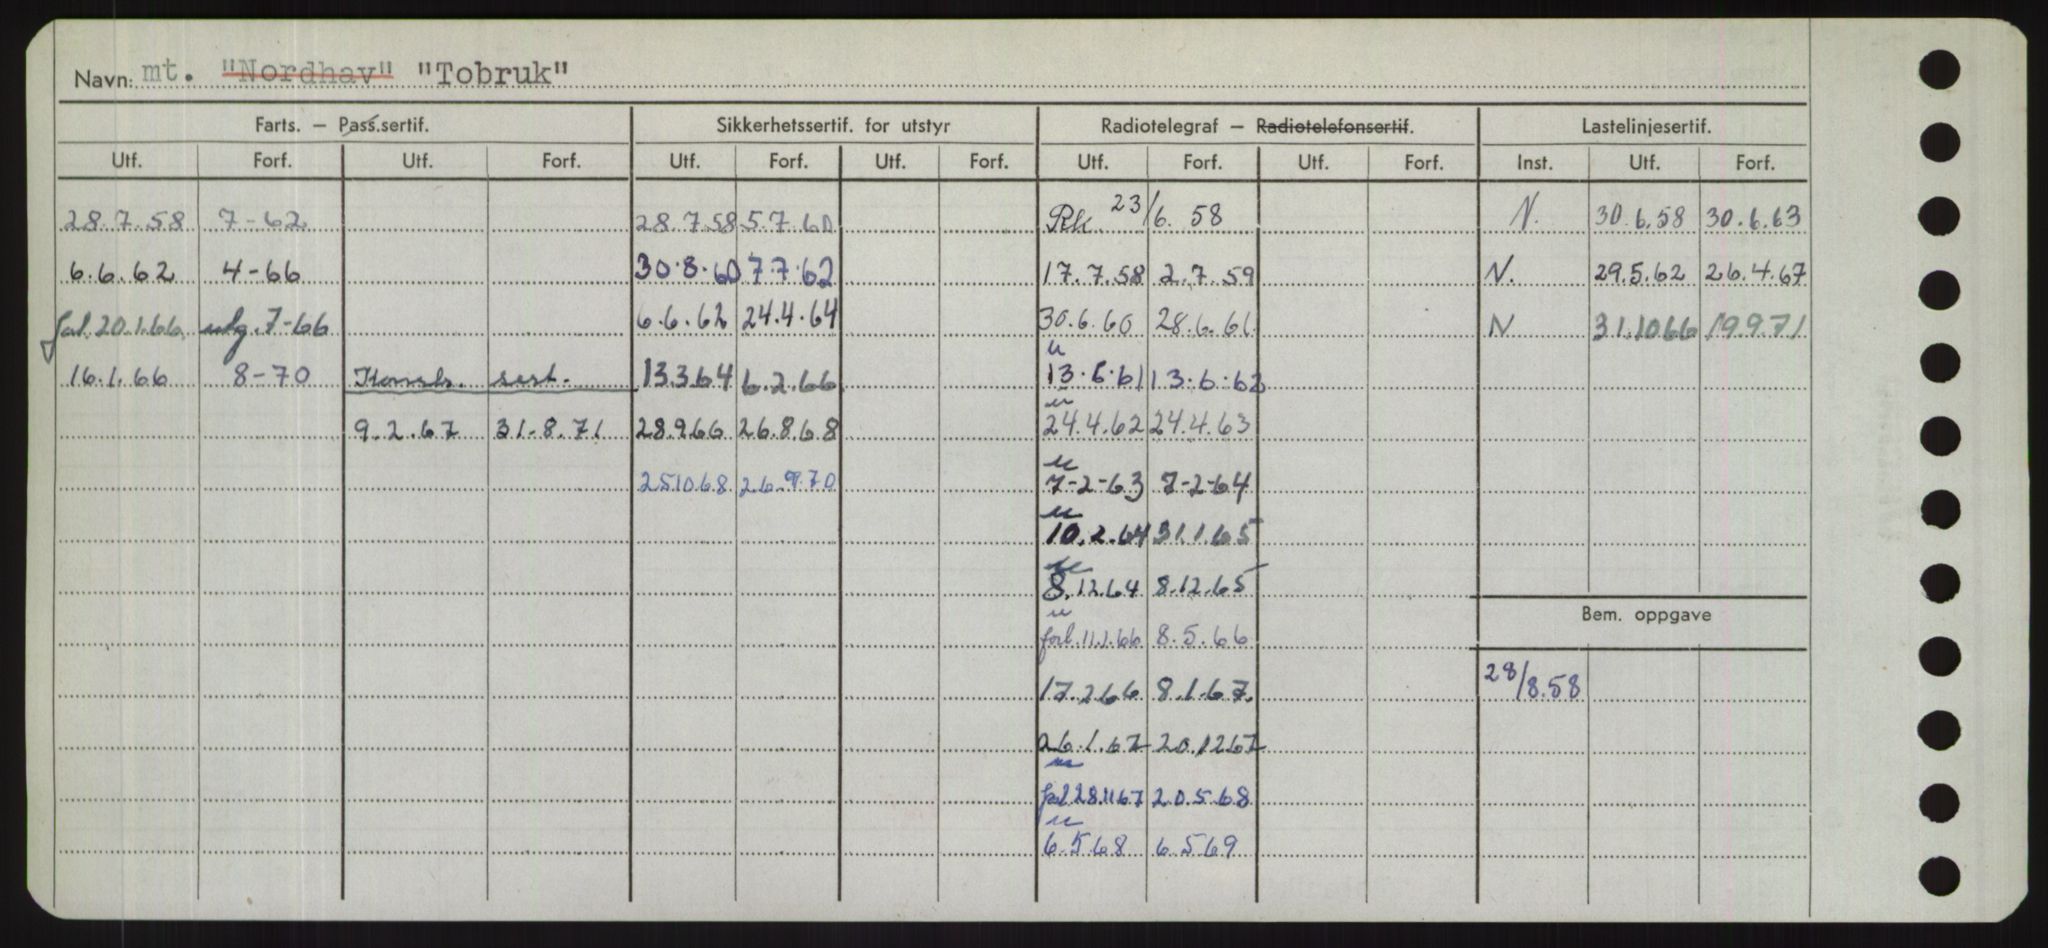 Navn: mt. "Nordhav" "Tobruk"
Farts. — Pass.sertif. Sikkerhetssertif. for utstyr Radiotelegraf — Radiotelefonsertif. Lastelinjesertif.
Utf. Forf. Utf. Forf. Utf. Forf. Utf. Forf. Utf. Forf. Utf. Forf. Inst. Utf. Forf.
28.7.58 7-62 28.7.58 5.7.60 23/6.58 N. 30.6.58 30.6.63
6.6.62 4-66 30.8.60 7.7.62 17.7.58 2.7.59 N. 29.5.62 26.4.67
20.1.66 7-66 6.6.62 24.4.64 30.6.60 28.6.61 N 31.1066 19.9.71
u
16.1.66 8-70 sert. 13.3.64 6.2.66 13.6.61 13.6.62
u
9.2.67 31.8.71 28.966 26.8.68 24.4.62 24.4.63
u
251068 26.9.70 7-2-63 7-2-64
u
10.2.64 31.1.65
8.12.64 8.12.65
u
Bem. oppgave
forl. 11.1.66 8.5.66
17.266 8.1.67. 28/8.58
26.1.67 20.1267
281167 20.568
u
6.568 6.569